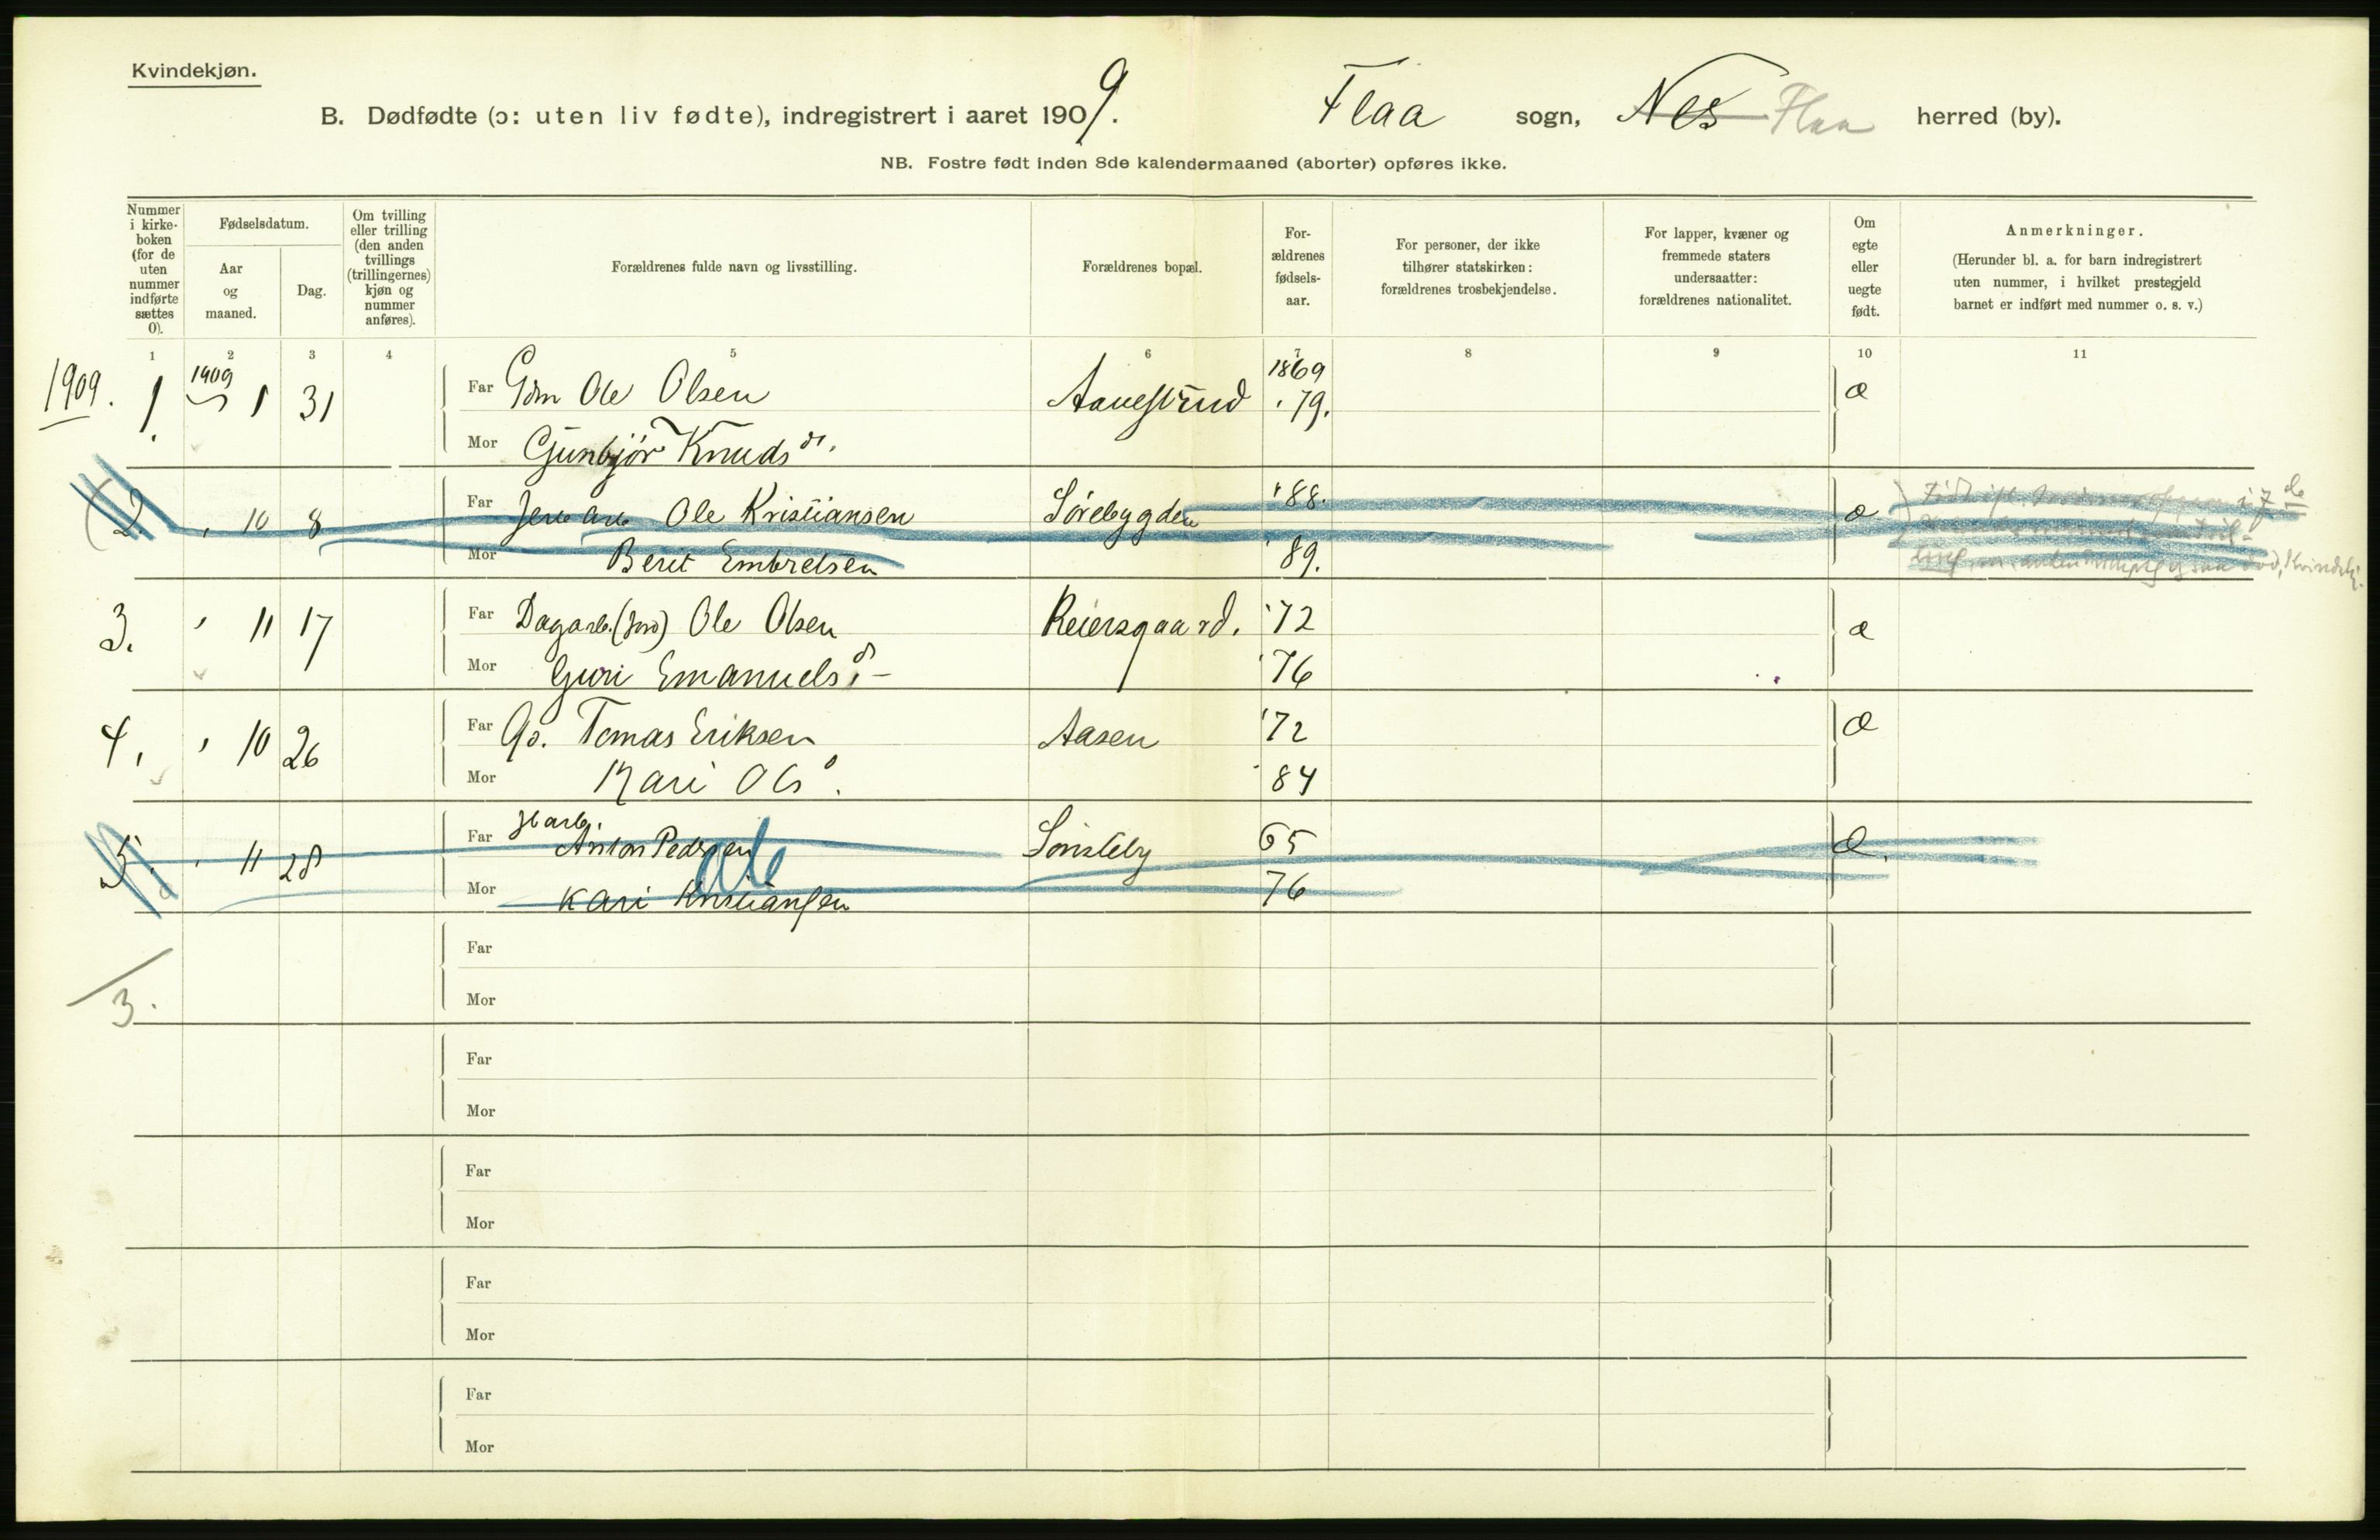 Kvindekjøn.
B. Dødfødte (ɔ: uten liv fødte), indregistrert i aaret 1909. Flaa sogn, Nes Flaa herred (by).
NB. Fostre født inden 8de kalendermaaned (aborter) opføres ikke.
Nummer i kirke-boken (for de uten nummer indførte sættes 0).
Fødselsdatum.
Aar og maaned.
Dag.
Om tvilling eller trilling (den anden tvillings (trillingernes) kjøn og nummer anføres).
Forældrenes fulde navn og livsstilling.
Forældrenes bopæl.
For-ældrenes fødsels-aar.
For personer, der ikke tilhører statskirken: forældrenes trosbekjendelse.
For lapper, kvæner og fremmede staters undersaatter: forældrenes nationalitet.
Om egte eller uegte født.
Anmerkninger.
(Herunder bl. a. for barn indregistrert uten nummer, i hvilket prestegjeld barnet er indført med nummer o. s. v.)
1 2 3 4 5 6 7 8 9 10 11
1909. 1. 1909 1 31 Far Gdm Ole Olsen 1869 æ
Mor Gunbjör Knudsdr. 79.
2. 10 8 Far Ole Kristiansen Sørebygden '88. æ
Mor Berit Embretsen 89.
3. 11 17 Far Dagarb. (Jord) Ole Olsen Reiersgaard. '72 æ
Mor Guri Emanuelsd. '76
4. 10 26 Far Tomas Eriksen Aasen '72 æ
Mor Kari Olsd. 84
5. 11 28 Far Anton Pedersen 65 æ.
Mor Kari Kristiansen 76
3.
Far
Mor
Far
Mor
Far
Mor
Far
Mor
Far
Mor